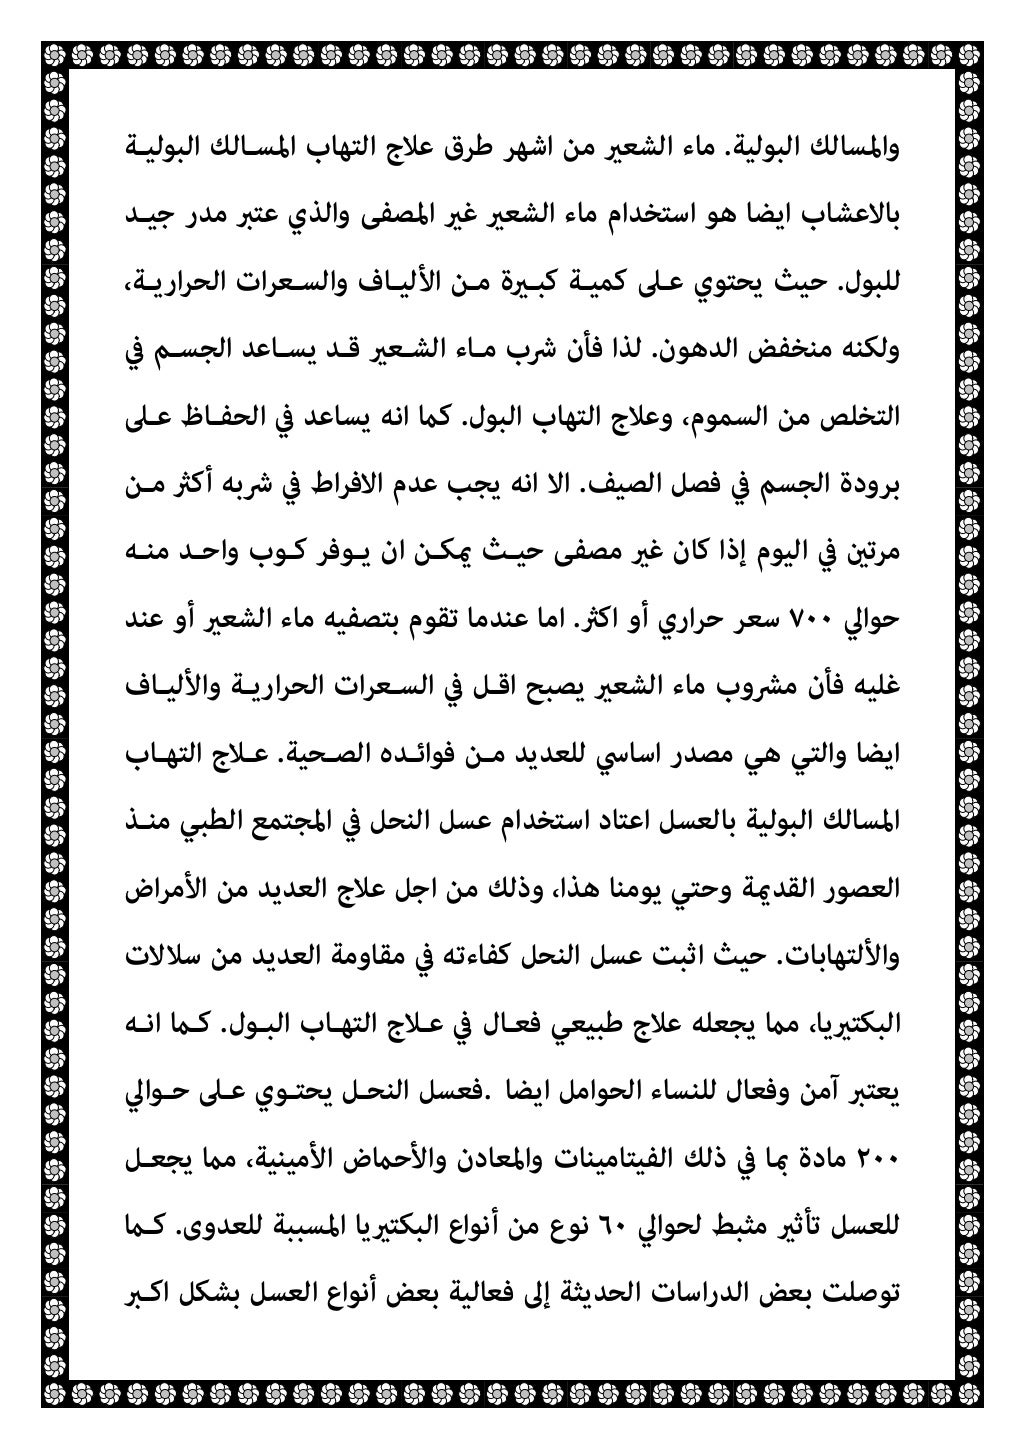 والمسالك البولية. ماء الشعير من اشهر طرق علاج التهاب المسالك البولية
بالاعشاب ايضا هو استخدام ماء الشعير غير المصفى والذي عتبر مدر جيد
للبول. حيث يحتوي على كمية كبيرة من الألياف والسعرات الحرارية،
ولكنه منخفض الدهون. لذا فأن شرب ماء الشعير قد يساعد الجسم في
التخلص من السموم، وعلاج التهاب البول. كما انه يساعد في الحفاظ على
برودة الجسم في فصل الصيف. الا انه يجب عدم الافراط في شربه أكثر من
مرتين في اليوم إذا كان غير مصفى حيث يمكن ان يوفر كوب واحد منه
حوالي ٧٠٠ سعر حراري أو اكثر. اما عندما تقوم بتصفيه ماء الشعير أو عند
غليه فأن مشروب ماء الشعير يصبح اقل في السعرات الحرارية والألياف
ايضا والتي هي مصدر اساسي للعديد من فوائده الصحية. علاج التهاب
المسالك البولية بالعسل اعتاد استخدام عسل النحل في المجتمع الطبي منذ
العصور القديمة وحتي يومنا هذا، وذلك من اجل علاج العديد من الأمراض
والألتهابات. حيث اثبت عسل النحل كفاءته في مقاومة العديد من سلالات
البكتيريا، مما يجعله علاج طبيعي فعال في علاج التهاب البول. كما انه
يعتبر آمن وفعال للنساء الحوامل ايضا .فعسل النحل يحتوي على حوالي
٢٠٠ مادة بما في ذلك الفيتامينات والمعادن والأحماض الأمينية، مما يجعل
للعسل تأثير مثبط لحوالي ٦٠ نوع من أنواع البكتيريا المسببة للعدوى. كما
توصلت بعض الدراسات الحديثة إلى فعالية بعض أنواع العسل بشكل اكبر